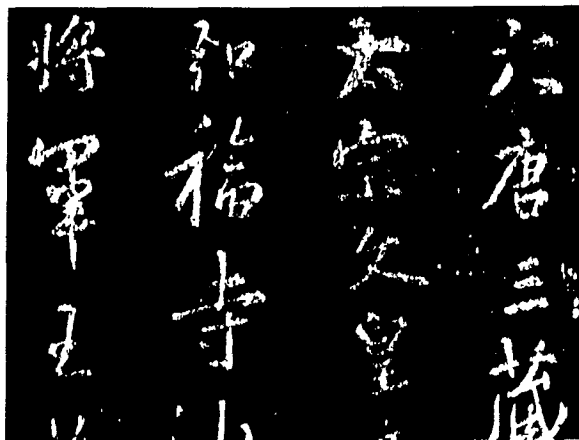 大唐三藏
太宗文皇
弘福寺
將軍王